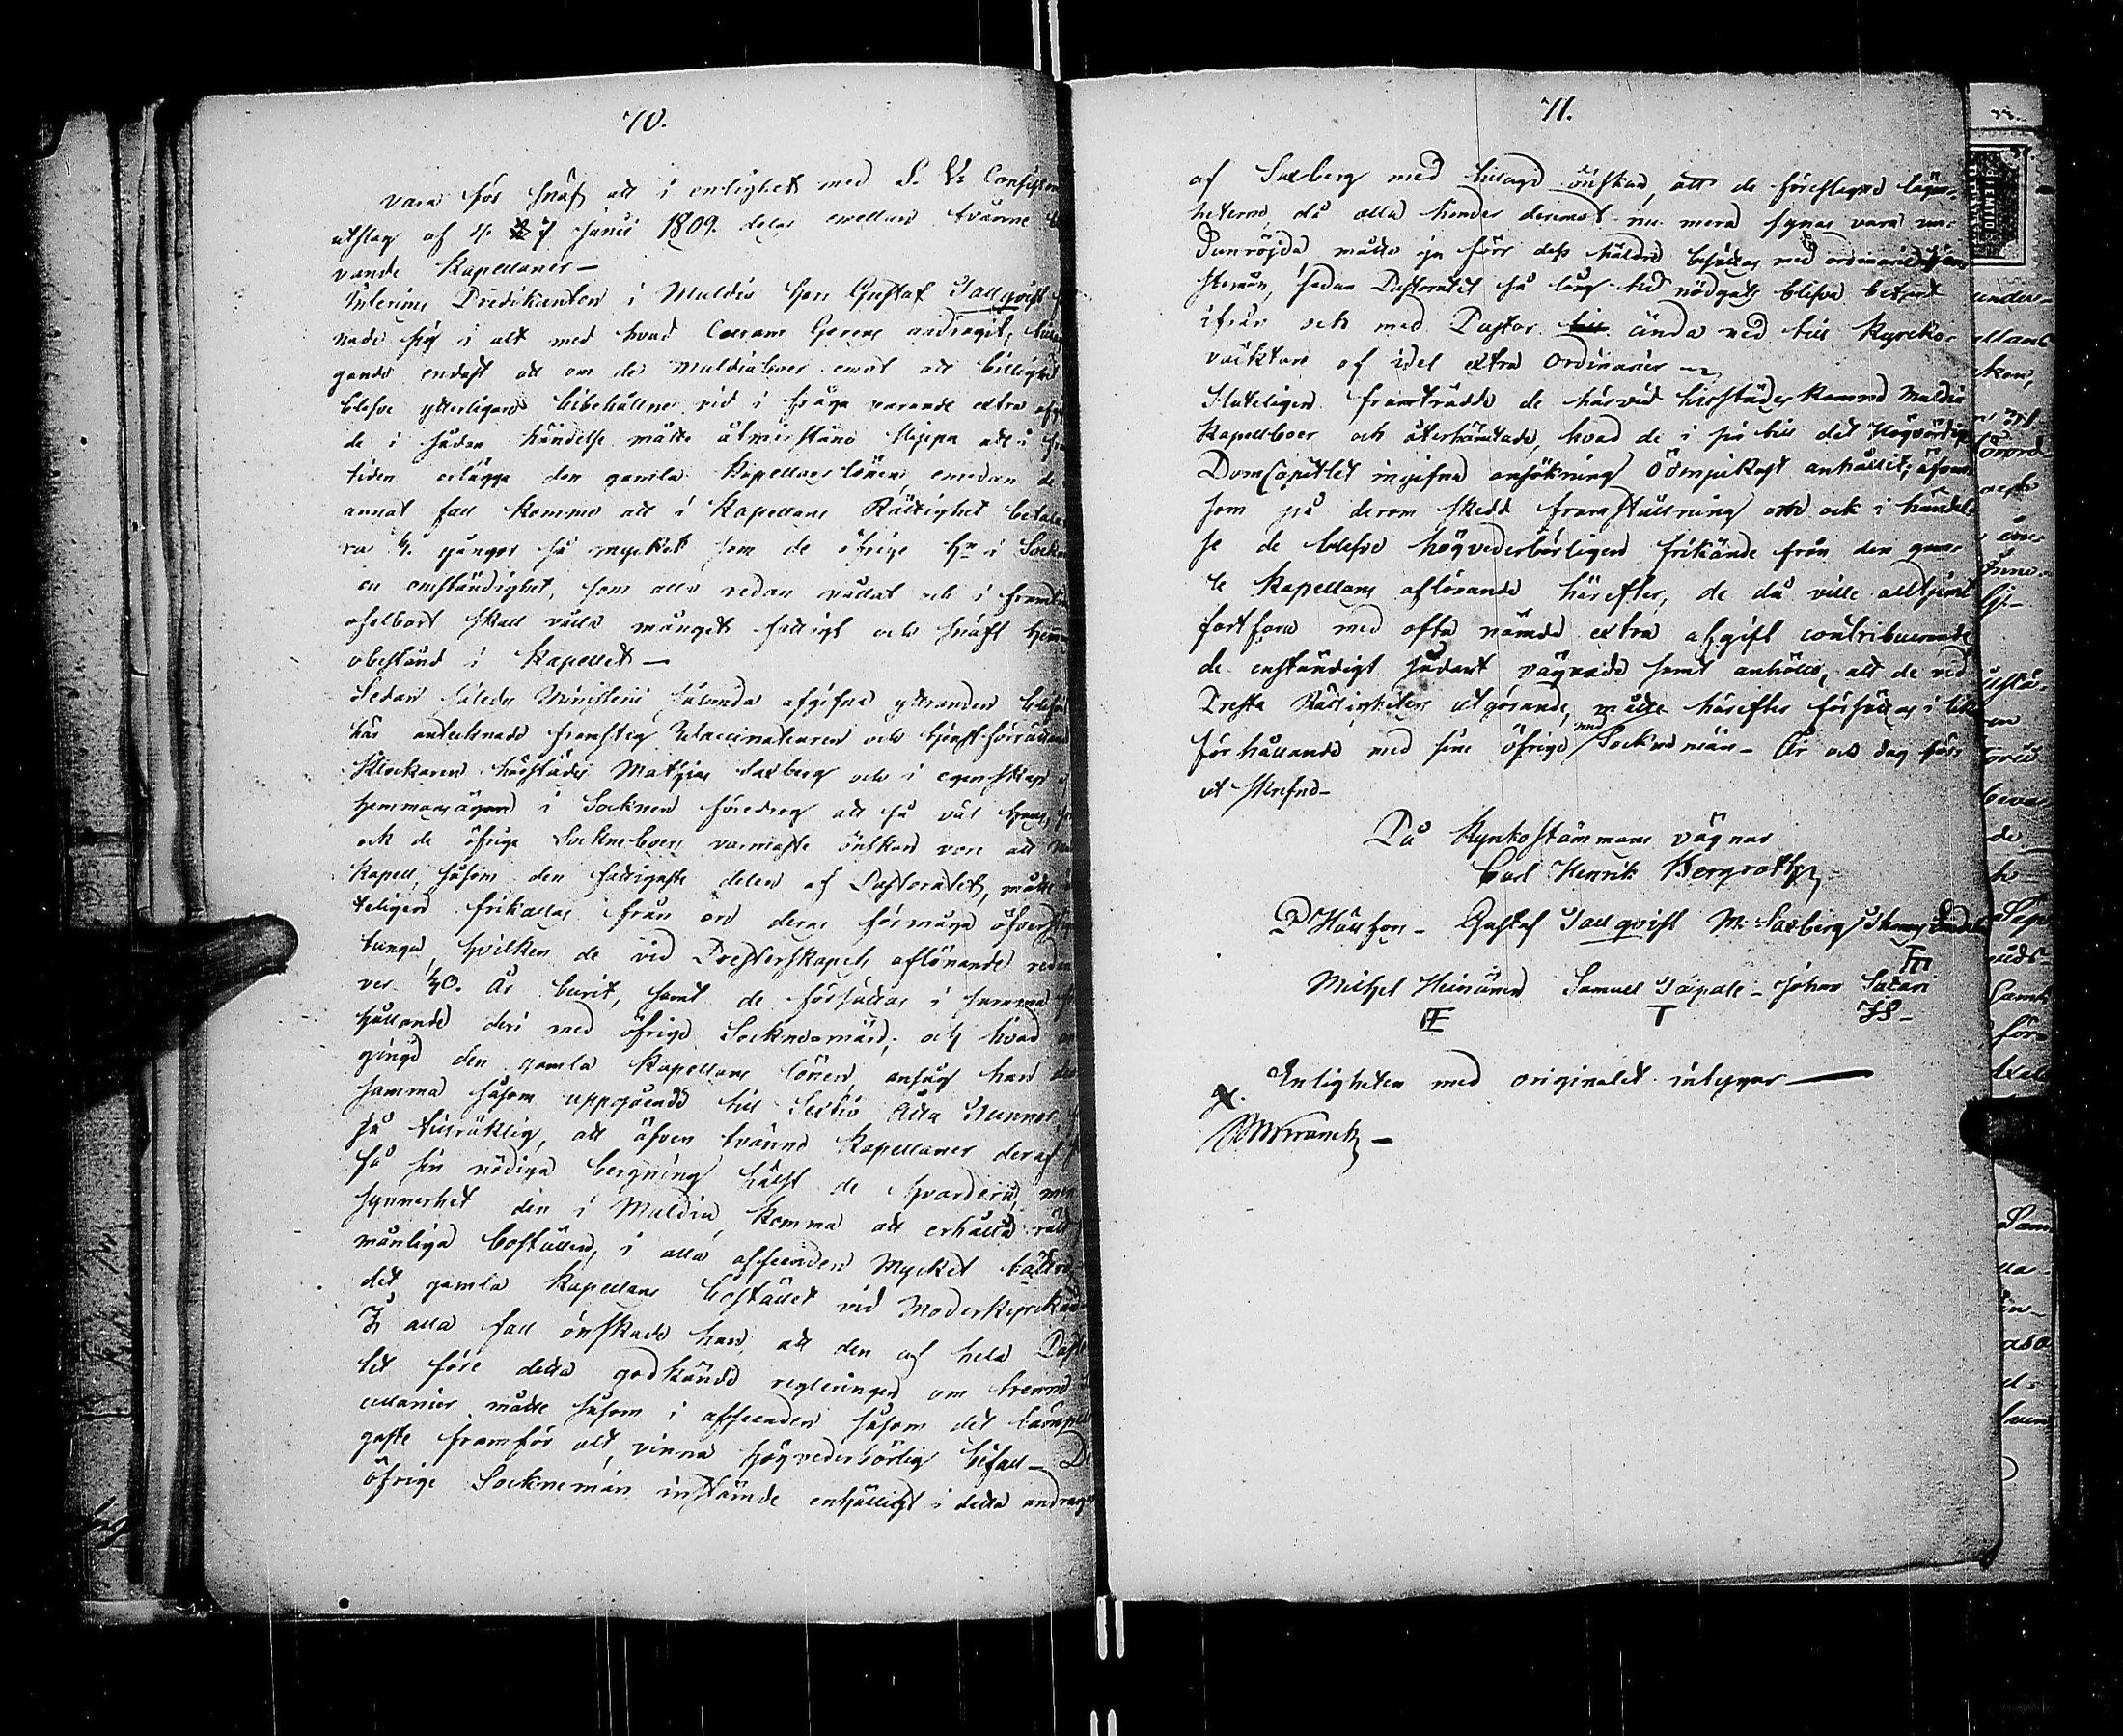 70.
vara för snäf att i enlighet med S. V. Consist
utslag af d. 7 Junii 1809. delas emellan tvänne
vande Kapellaner —
Interims Predikanten i Muldia Herr Gustaf Tallqvist
nade sig i alt med hvad Coram Gerens andragit,
gande endast att om de Muldiaboer emot all billighet
blefve ytterligare bibehållne vid i fråga varande extra
de i sådan händelse måtte åtminstone slippa att i
tiden erlägga den gamla Kapellans lönen, emedan de
annat fall komme att i Kapellans Rättighet betala
ra gånger så mycket som de öfrige i
en omständighet, som allaredan vållat och i framti
ofelbart skall vålla mången fattigt och snäft
obestånd i Kapellet —
Sedan således Ministerii sålunda afgifne yttranden blefvo
här antecknade framsteg Vaccinateuren och tjenst förrättande
Klockaren härstädes Mathias Saxberg och i egenskap
Hemmansägare i Socknen föredrog att så väl hans,
och de öfrige Socknebors varmaste önskan vore att
Kapell, såsom den fattigaste delen af Pastoratet, måtte
teligen frikallas ifrån en deras förmåga öfverstig
tunga, hvilken de vid Presterskapets aflönande redan
ver 40. År burit, samt de försättas i samma för
hållande deri med öfrige Socknemän; och hvad
ginge den gamla Kapellans lönen, ansåg han
samma såsom uppgående till Sextio Åtta Tunnor
så tillräcklig, att äfven tvänne Kapellaner deraf
få sin nödiga bergning hälst de hvardera,
synnerhet den i Muldia, komma att erhålla
månliga boställen, i alla afseenden mycket bättre
det gamla Kapellans bostället vid Moderkyrkan
I alla fall önskade han, att den af hela Pasto
tet före detta godkände regleringen om trenne
cellanier måtte såsom i afseenden såsom det lämpeli
gaste framför alt, vinna högvederbörlig bifall — De
öfrige Socknemän instämde enhälligt i detta andragande
71.
af Saxberg med tillagd önskan, att de föreslagne lägen-
heterne, då alla hinder deremot nu mera synas vara un-
danröjda, måtte ju förr dess häldre besättas med ordinarie tjen
stemän, sedan Pastoratet så lång tid nödgats blifva betjent
ifrån och med Pastor ända ned till Kyrko-
väktare af idel extra Ordinarier —
Sluteligen framträdde de härvid tillstädes komne Muldia
Kapellboer och återhämtade, hvad de i sin till det Högvördige
DomCapitlet ingifne ansökning ödmjukast anhållit; äfven
som på derom skedd framställning och i händel-
se de blefve högvederbörligen frikände från den gam-
le Kapellans aflönande härefter, de då ville alltjemt
fortfara med ofta nämde extra afgift contribuerande
de enständigt sådant vägrade samt anhöllo, att de vid
Presta Rättigheters utgörande, måtte härefter försättas i lika
förhållande med sine öfrige med Socknemän — År och dag förr
ut skrefne —
På Kyrkostämmans vägnar
Carl Henrik Bergroth
P Hällfors — Gustaf Tallqvist M. Saxberg
Michel Heinänen Samuel Taipale — Johan Satari
T
JS —
Enligheten med originalet intygar —